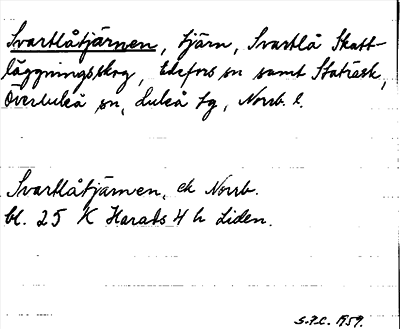 Svartlåtjärnen, tjärn, Svartlå Skatt-
läggningsskog, Edefors sn samt Statresk,
Överluleå sn, Luleå tg, Norrb. l.
Svartlåtjärnen, ek Norrb.
bl. 25 K Harads 4 h Liden.
S.P.C. 1959.